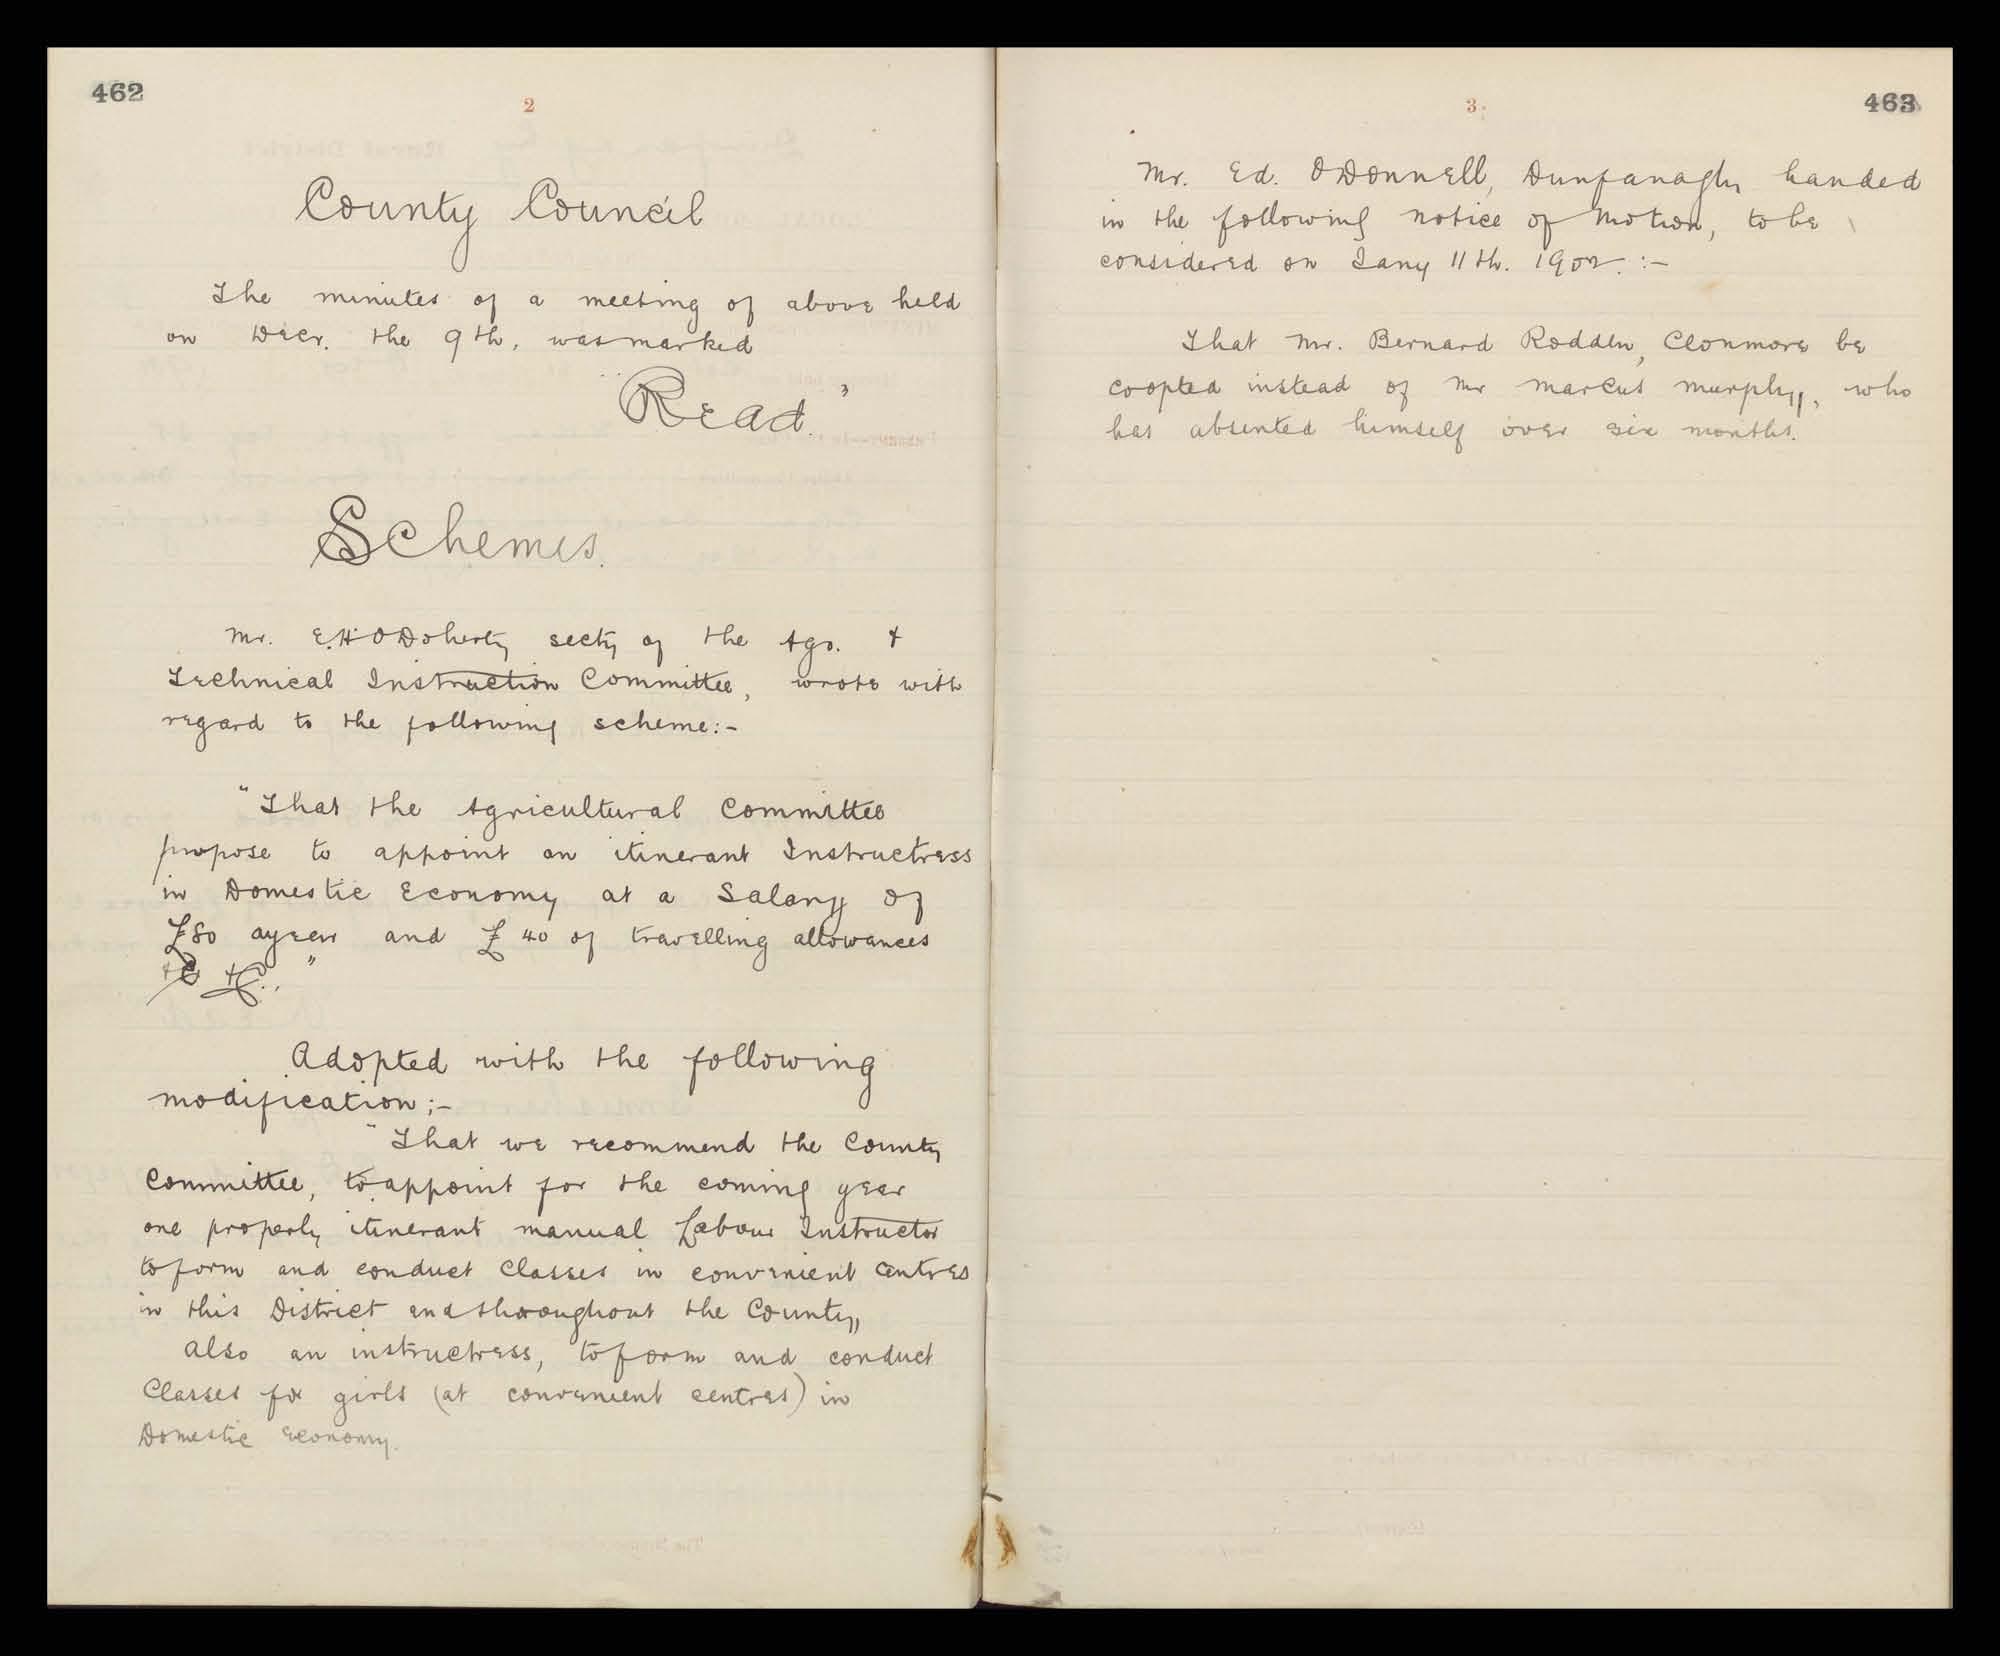 462
2
County Council
The minutes of a meeting of above held
on Decr. the 9th, was marked
"Read."
Schemes.
Mr. E.H. O'Doherty secty of the Agr. &
Technical Instruction Committee, wrote with
regard to the following scheme:-
"That the Agricultural Committee
propose to appoint an itinerant Instructress
in Domestic Economy at a Salary of
£80 a year and £40 of travelling allowances
&c &c."
Adopted with the following
modification:-
"That we recommend the County
Committee, to appoint for the coming year
one properly itinerant manual Labour Instructor
to form and conduct Classes in convenient Centres
in this District and throughout the County,
Also an instructress, to form and conduct
Classes for girls (at convenient centres) in
Domestic Economy.
3.
463
Mr. Ed. O'Donnell, Dunfanaghy handed
in the following notice of Motion, to be
considered on Jany 11th. 1902.:-
That Mr. Bernard Rodden, Clonmore be
coopted instead of Mr Marcus Murphy, who
has absented himself over six months.